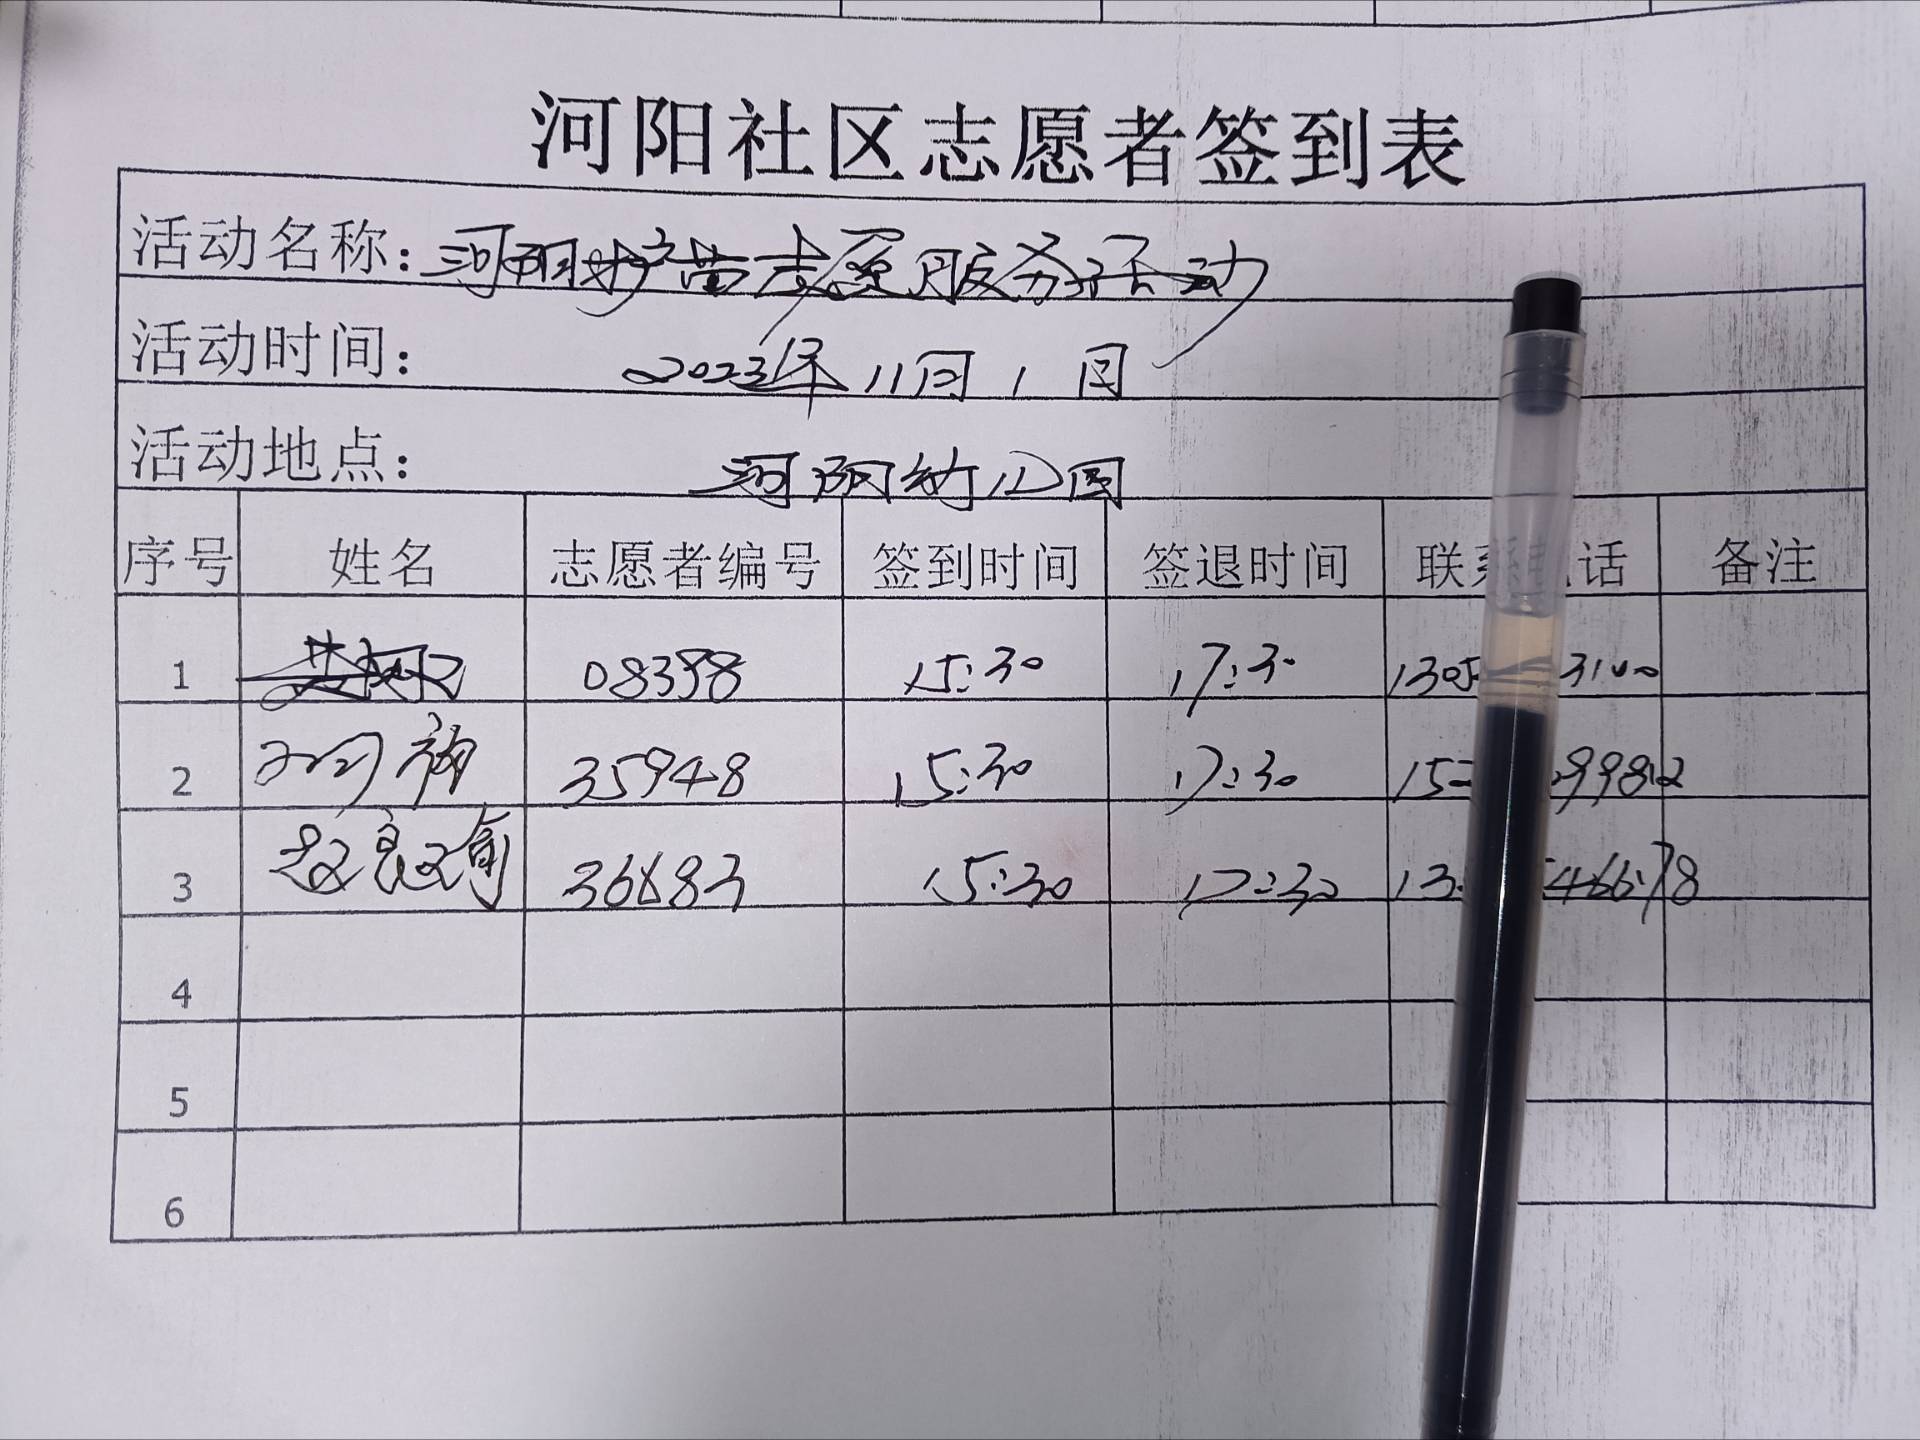 河阳社区志愿者签到表
活动名称：河阳护苗志愿服务活动
活动时间：2023年11月1日
活动地点：河阳幼儿园
序号 姓名 志愿者编号 签到时间 签退时间 联系电话 备注
1 08398 15:30 17:30 3100
2 35948 15:30 17:30
3 15:30 17:30
4
5
6